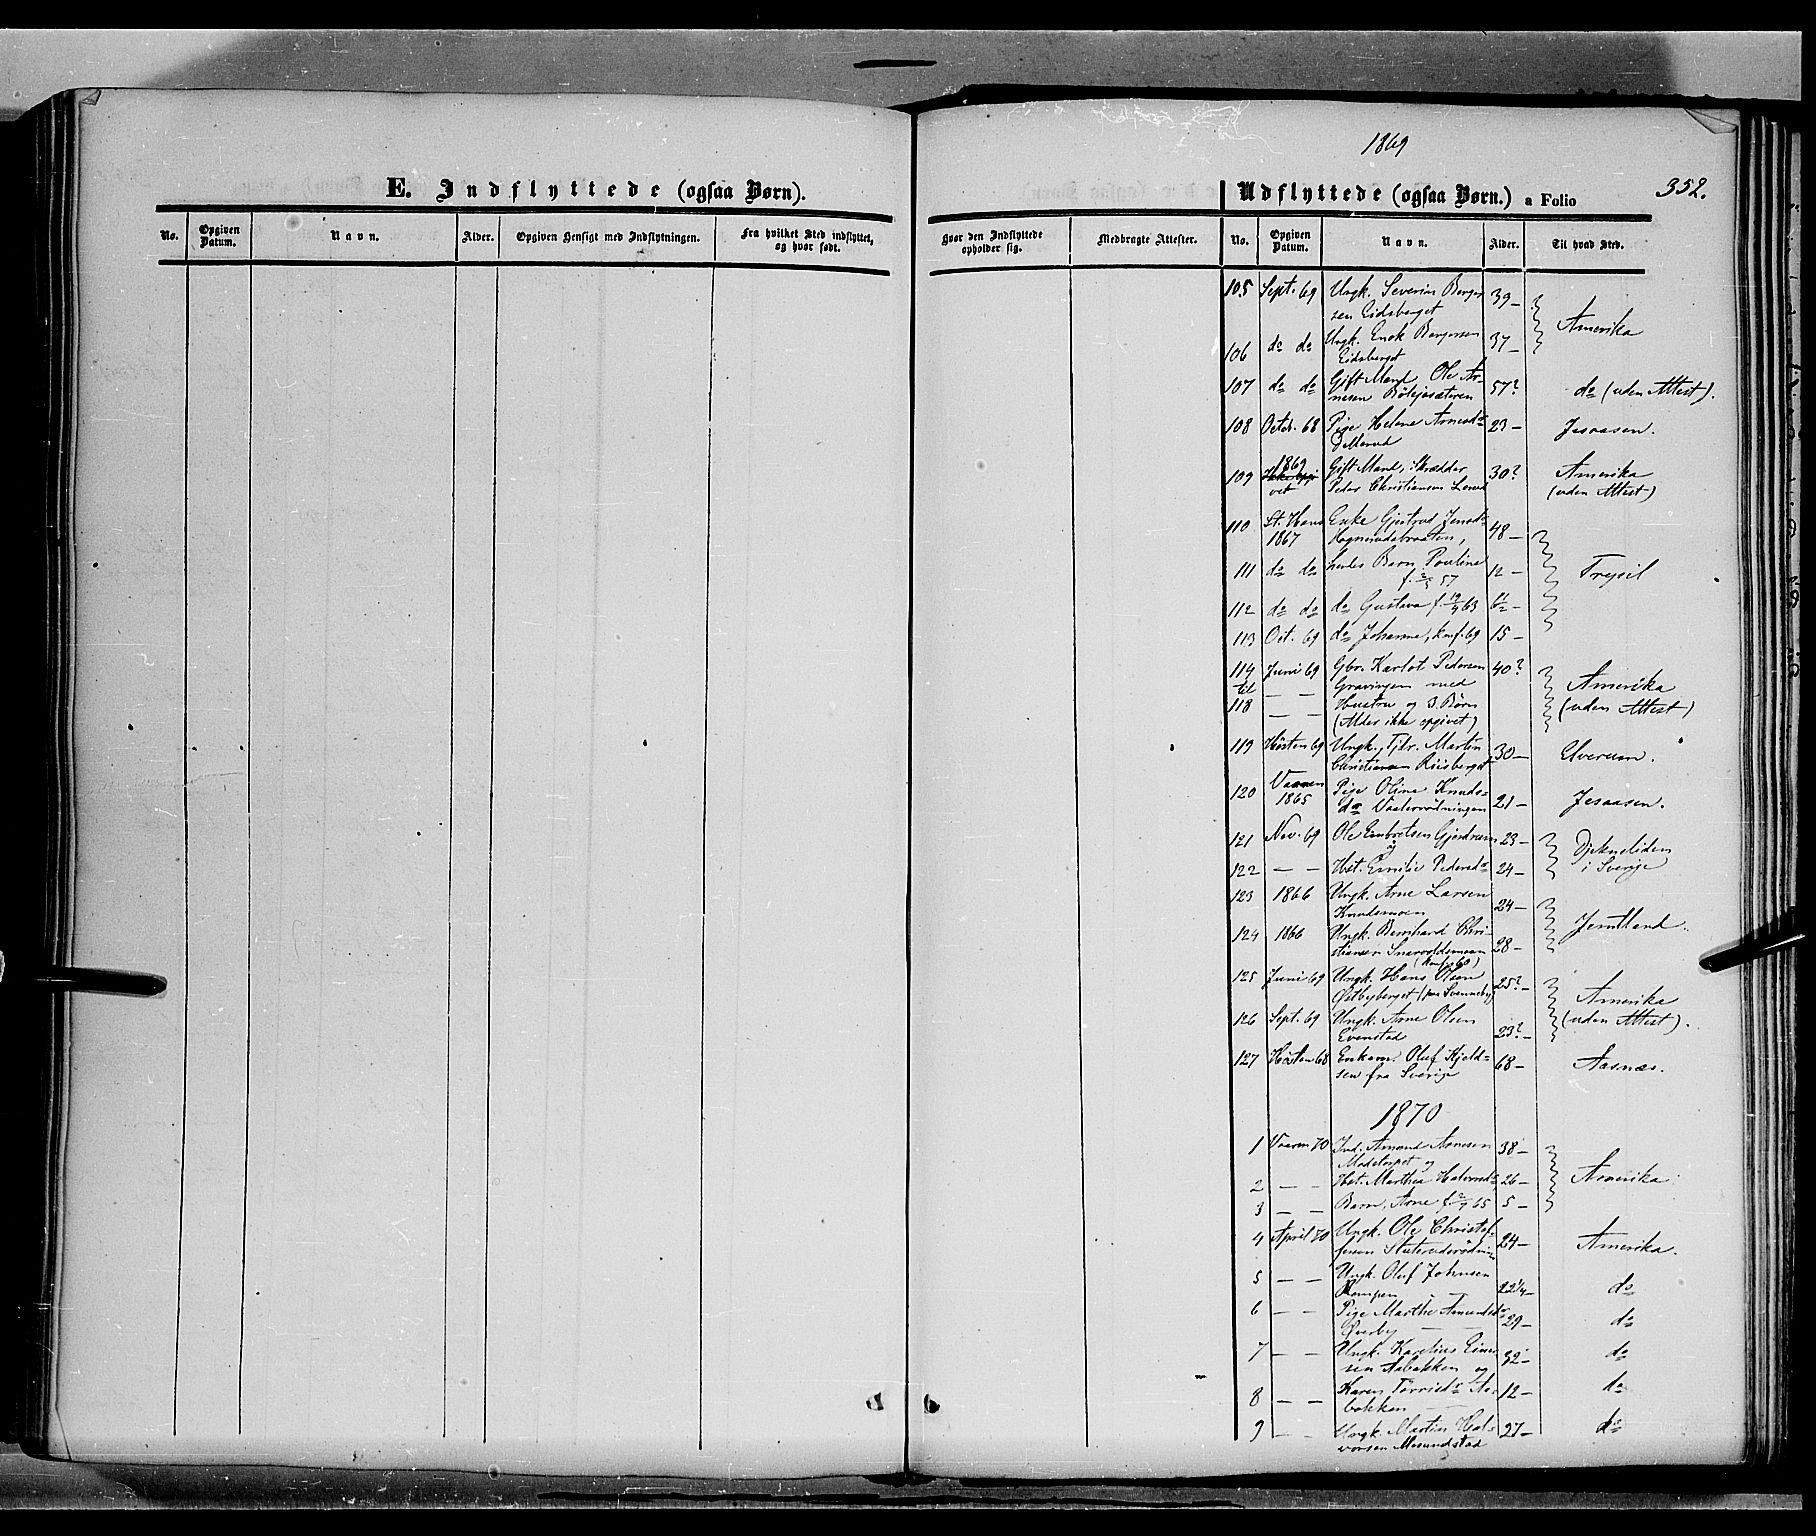 1869
352.
E. Indflyttede (ogsaa Børn).
No. Opgiven Datum. Navn. Alder. Opgiven Hensigt med Indflytningen. Fra hvilket Sted indflyttet, og hvor født.
Hvor den Indflyttede opholder sig. Medbragte Attester.
Udflyttede (ogsaa Børn.) a Folio
No. Opgiven Datum. Navn. Alder. Til hvad Sted.
105 Sept. 69 Ungk. Severin Berger 39 –
sen Eidsberget
Amerika
106 do do Ungk. Enok Bergersen 37 –
Eidsberget
107 do do Gift Mand Ole Ar- 57? do (uden Attest).
nesen
108 Octbr. 68 Pige Helene Arnesdr 23 – Jesaasen.
109 1869 Gift Mand, Skrædder 30? Amerika
Peder Christiansen (uden Attest)
110 St. Hans Enke Gjertrud Jensdr 48 –
1867
111 do do hendes Barn Pauline 12 – Trysil
57
112 do do do Gustava f. 12/9 63 6½ –
113 Oct. 69 do Johanne, konf. 69 15 –
114 Juni 69 Gbr. Karlot Pedersen 40?
til – – Gravingen med Amerika
118 – – Hustru og 3 Børn (uden Attest)
(Alder ikke opgivet)
119 Høsten 69 Ungk., Tjbr. Martin 30 – Elverum.
Christiansen Riisberget
120 Vaaren Pige Olina Knuds- 21 – Jesaasen.
1865 dr
121 Nov. 69 Ole Embretsen Gjerdrum 23 –
i Sverige
122 – – Hst. Emilie Pedersdr 24 –
123 1866 Ungk. Arne Larsen 24 –
Knudsmoen
Jemtland.
124 1866 Ungk. Bernhard Chri- 28 –
stiansen
125 Juni 69 Ungk. Hans Olsen 25? –
Østbyberget (paa Svenneby) Amerika
126 Sept. 69 Ungk. Arne Olsen 23? – (uden Attest).
Evenstad
127 Høsten 68 Enkem. Oluf Kjeld- 68 – Aasnæs.
sen fra Sverige
1870
1 Vaaren 70 Ind. Amund Arnesen 38 –
og
2 – – Hst. Marthea Halvorsdr 26 – Amerika
3 – – Barn, Arne f. 2/9 65 5 –
4 April 70 Ungk. Ole Christof- 24 – Amerika.
fersen
5 – – Ungk. Oluf Johnsen 22¼ – do
6 – – Pige Marthe Amundsdr 29 – do
Øverby
7 – – Ungk. Karelius Einer 32 – do
sen Aabakken og
8 – – Karen Aa- 12 – do
bakken
9 – – Ungk. Martin Hal- 27 – do
vorsen Mesundstad